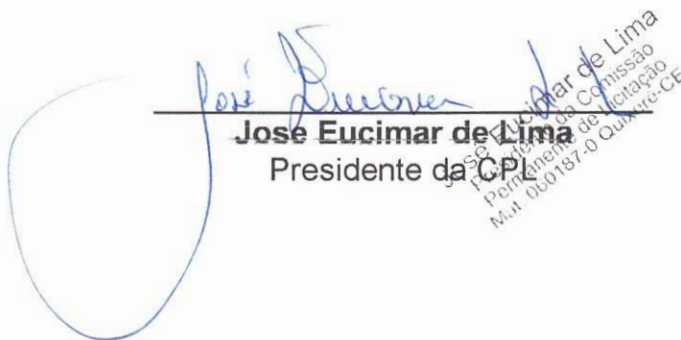 José Eucimar de Lima
Jose Eucimar de Lima
Presidente da CPL
José Eucimar de Lima
Presidente da Comissão
Permanente de Licitação
Mat. 060187-0 Quixeré-CE